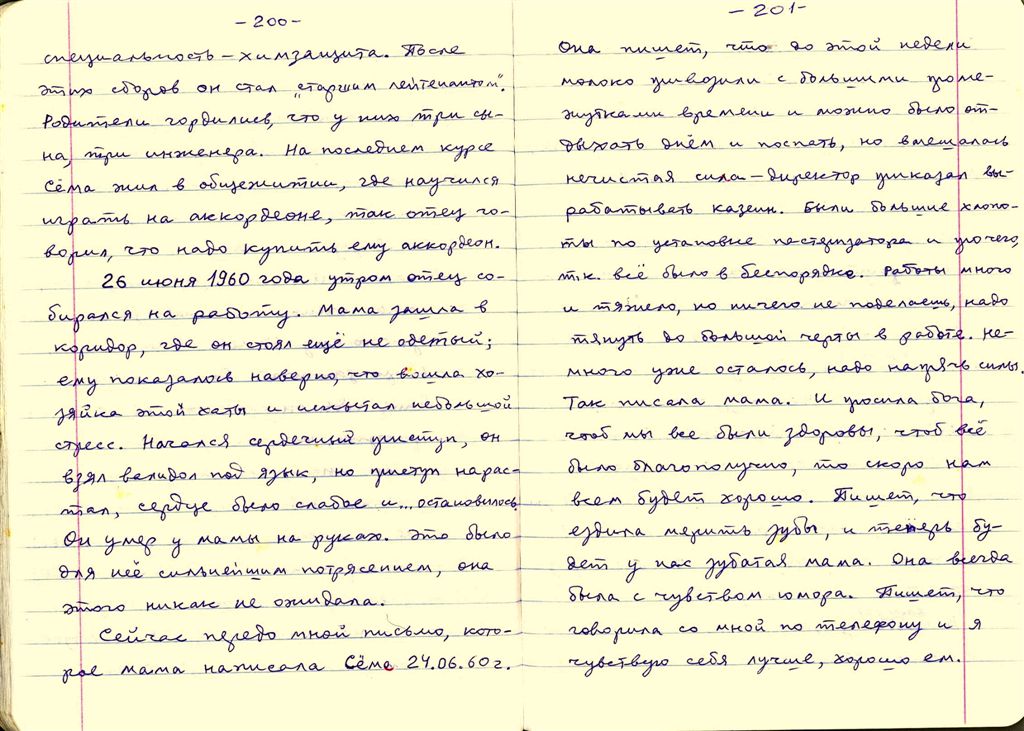 -200-
специальность – химзащита. После
этих сборов он стал „старшим лейтенантом“.
Родители гордились, что у них три сы-
на, три инженера. На последнем курсе
Сёма жил в общежитии, где научился
играть на аккордеоне, так отец го-
ворил, что надо купить ему аккордеон.
26 июня 1960 года утром отец со-
бирался на работу. Мама зашла в
коридор, где он стоял ещё не одетый;
ему показалось наверно, что вошла хо-
зяйка этой хаты и испытал небольшой
стресс. Начался сердечный приступ, он
взял валидол под язык, но приступ нарас-
тал, сердце было слабое и... остановилось
Он умер у мамы на руках. Это было
для неё сильнейшим потрясением, она
этого никак не ожидала.
Сейчас передо мной письмо, кото-
рое мама написала Сёме 24.06.60г.
-201-
Она пишет, что до этой недели
молоко привозили с большими проме-
жутками времени и можно было от-
дыхать днём и поспать, но вмешалась
нечистая сила – директор приказал вы-
рабатывать казеин. Были большие хлопо-
ты по установке пастеризатора и прочего,
т.к. всё было в беспорядке. Работы много
и тяжело, но ничего не поделаешь, надо
тянуть до большой черты в работе. Не-
много уже осталось, надо напрячь силы.
Так писала мама. И просила бога,
чтоб мы все были здоровы, чтоб всё
было благополучно, то скоро нам
всем будет хорошо. Пишет, что
ездила мерить зубы, и теперь бу-
дет у нас зубатая мама. Она всегда
была с чувством юмора. Пишет, что
говорила со мной по телефону и я
чувствую себя лучше, хорошо ем.